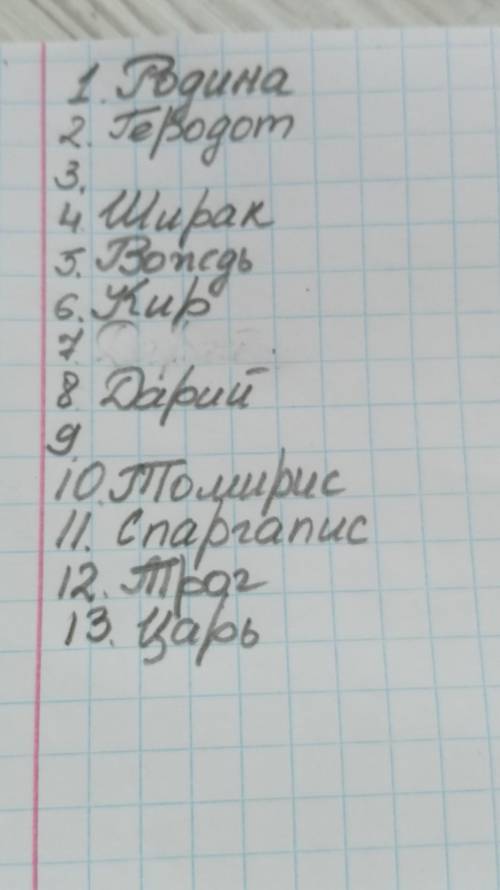 1. Родина
2. Геродот
3.
4. Ширак
5. Вождь
6. Кир
7
8. Дарий
9.
10. Томирис
11. Спаргапис
12. Трог
13. Царь